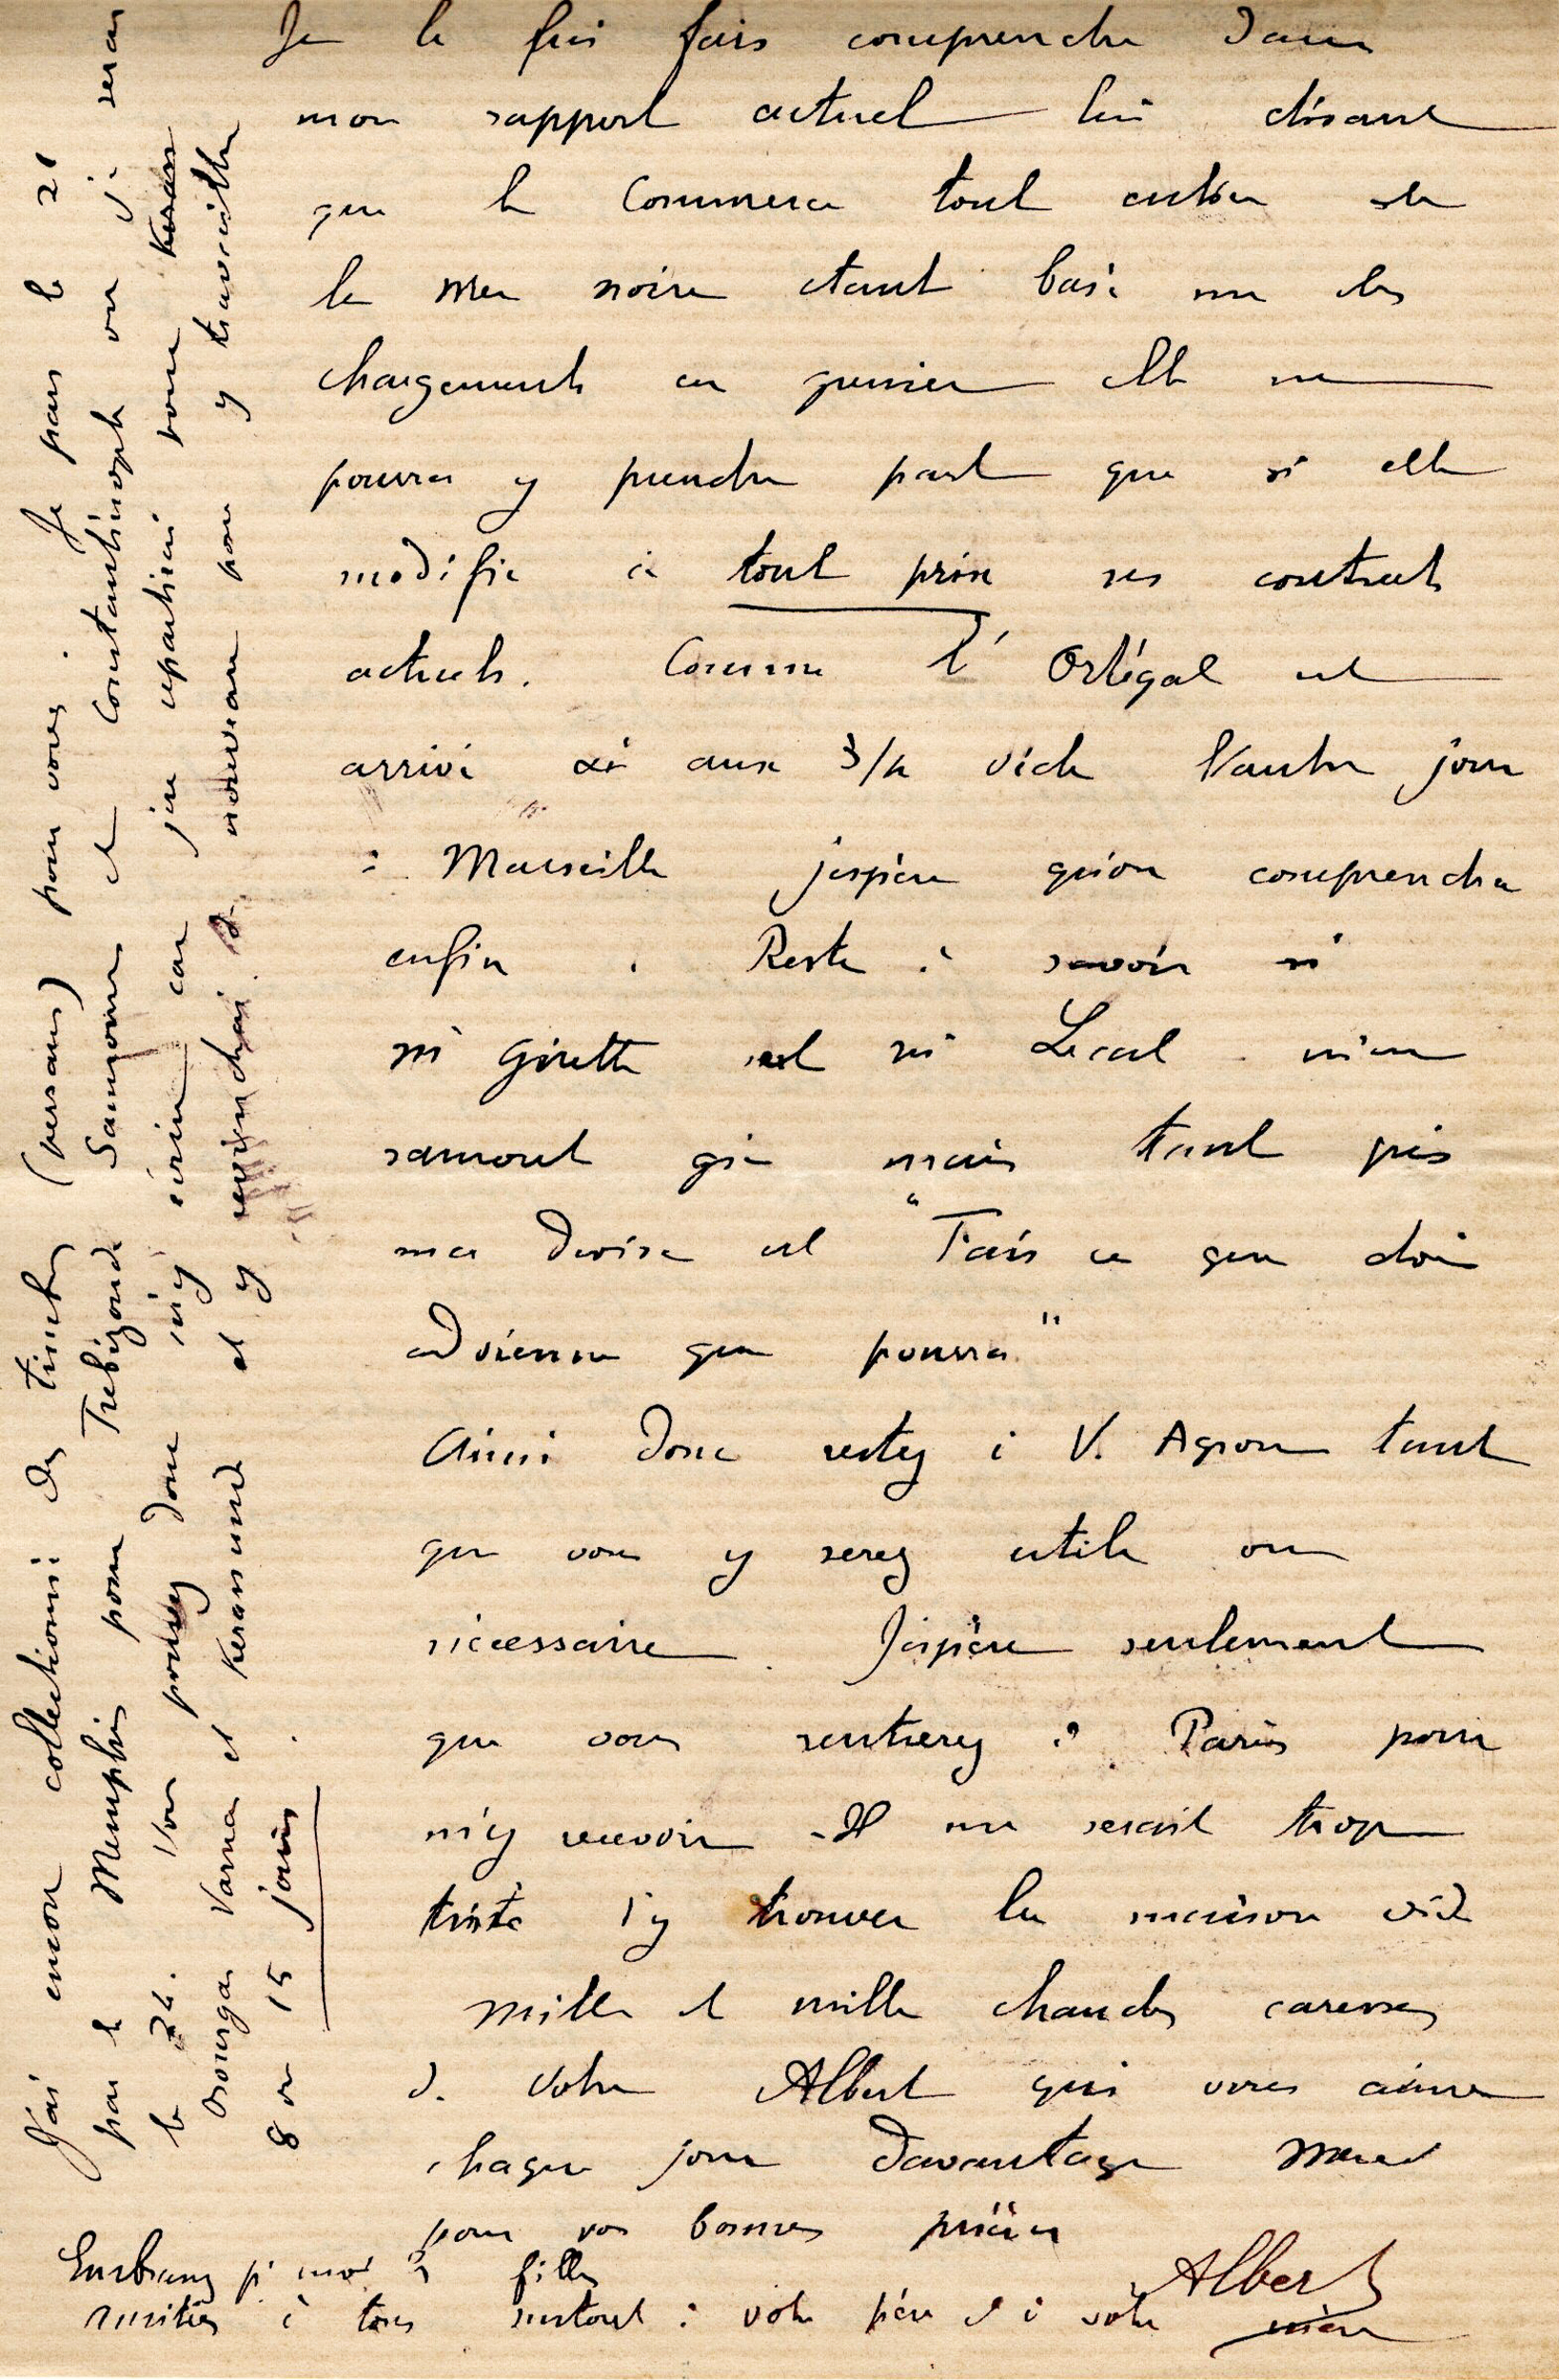 Je le fais fais comprendre dans
mon rapport actuel lui disant
que le Commerce tout entier de
la Mer noire etant basé sur des
chargements en grenier elle ne
pourra y prendre part que si elle
modifie à tout prix ses contrats
actuels. Comme l'Ortégal est
arrivé ici aux 3/4 vide l'autre jour
à Marseille j'espère qu'on comprendra
enfin. Reste à savoir si
ni Girette ni Lecat
sauront gré mais tant pis
ma devise est "Fais ce que dois
advienne que pourra"
Ainsi donc restez à V. Agron tant
que vous y serez utile ou
nécessaire. J'espère seulement
que vous rentrerez à Paris pour
m'y recevoir - Il me serait trop
triste d'y trouver la maison vide
Mille et mille chaudes caresses
de votre Albert qui vous aime
chaque jour davantage Merci
pour vos bonnes prières
Albert
Embrassez pr moi 3 filles
amitiés à tous surtout à votre père et à votre mère
J'ai encore collectionné des timbres (persans) pour vous. Je pars le 21
par le Memphis pour Trebizonde Samsoun et Constantinople ou je serai
le 24. Vous pouvez donc m'y écrire car j'en repartirai pour
Bourgas Varna et Kerassunde et y reviendrai de nouveau pour y travailler
8 ou 15 jours.